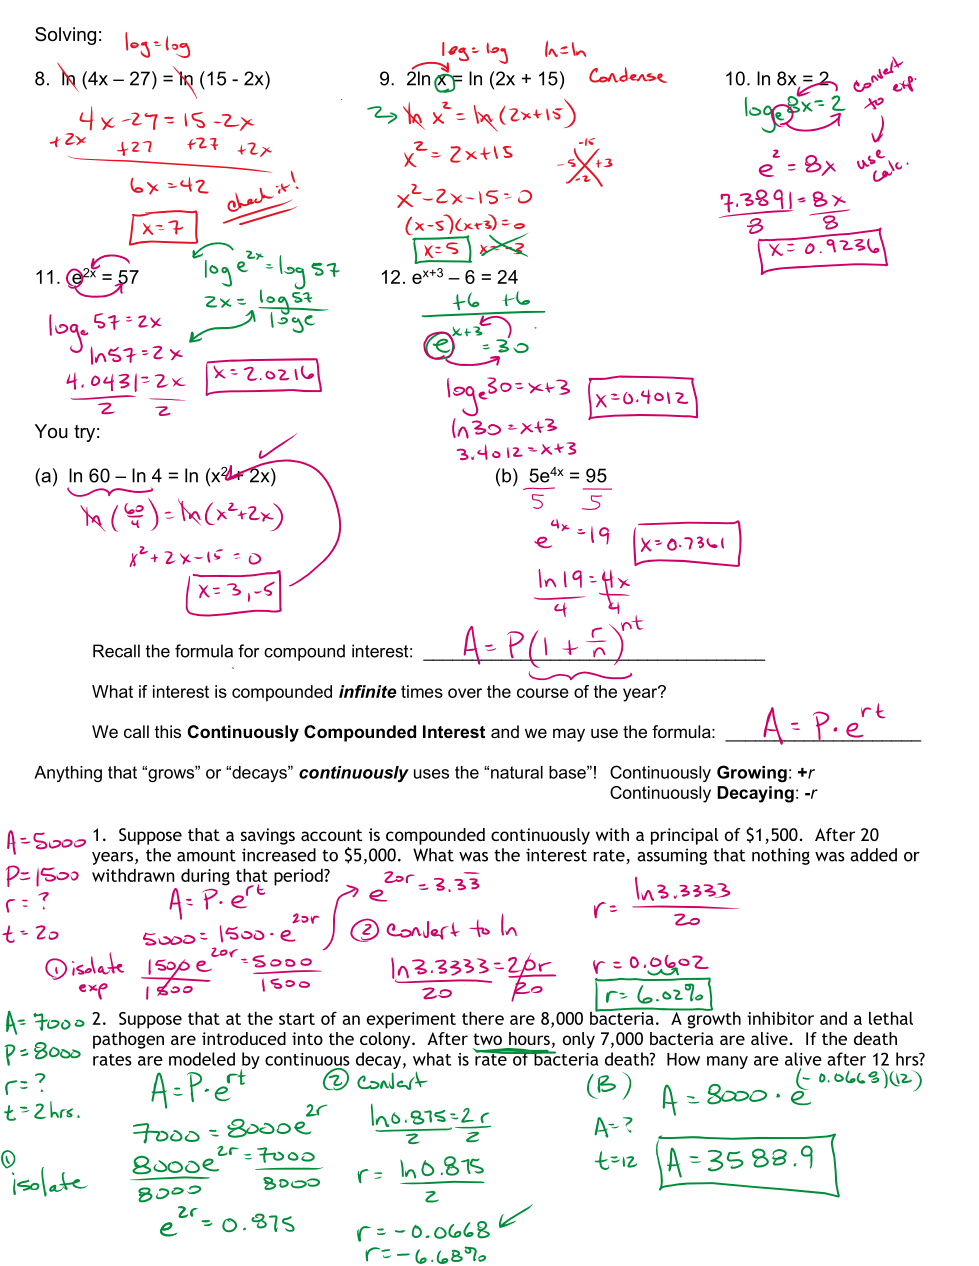 Solving:
log = log
8. ln (4x – 27) = ln (15 - 2x)
4x - 27 = 15 - 2x
+2x +27 +27 +2x
6x = 42
check it!
x = 7
log = log ln = ln
9. 2ln x = ln (2x + 15) Condense
2 → ln x² = ln (2x+15)
x² = 2x+15
-15
-5 +3
-2
x² - 2x - 15 = 0
(x-5)(x+3) = 0
x = 5 x = -3
10. ln 8x = 2
convert to exp.
logₑ 8x = 2
e² = 8x
use calc.
7.3891 = 8x
8 8
x = 0.9236
11. e²ˣ = 57
log e²ˣ = log 57
2x = log 57
log e
logₑ 57 = 2x
ln 57 = 2x
4.0431 = 2x
2 2
x = 2.0216
12. eˣ⁺³ – 6 = 24
+6 +6
eˣ⁺³ = 30
logₑ 30 = x+3
ln 30 = x+3
3.4012 = x+3
x = 0.4012
You try:
(a) ln 60 – ln 4 = ln (x² + 2x)
ln (60/4) = ln (x²+2x)
x² + 2x - 15 = 0
x = 3, -5
(b) 5e⁴ˣ = 95
5 5
e⁴ˣ = 19
ln 19 = 4x
4 4
x = 0.7361
Recall the formula for compound interest: A = P(1 + r/n)ⁿᵗ
What if interest is compounded infinite times over the course of the year?
We call this Continuously Compounded Interest and we may use the formula: A = P·eʳᵗ
Anything that “grows” or “decays” continuously uses the “natural base”! Continuously Growing: +r
Continuously Decaying: -r
1. Suppose that a savings account is compounded continuously with a principal of $1,500. After 20
years, the amount increased to $5,000. What was the interest rate, assuming that nothing was added or
withdrawn during that period?
A = 5000
P = 1500
r = ?
t = 20
A = P·eʳᵗ
5000 = 1500·e²⁰ʳ
① isolate exp
1500e²⁰ʳ = 5000
1500 1500
e²⁰ʳ = 3.33
② convert to ln
ln 3.3333 = 20r
20 20
r = ln 3.3333
20
r = 0.0602
r = 6.02%
2. Suppose that at the start of an experiment there are 8,000 bacteria. A growth inhibitor and a lethal
pathogen are introduced into the colony. After two hours, only 7,000 bacteria are alive. If the death
rates are modeled by continuous decay, what is rate of bacteria death? How many are alive after 12 hrs?
A = 7000
P = 8000
r = ?
t = 2 hrs.
① isolate
A = P·eʳᵗ
7000 = 8000e²ʳ
8000e²ʳ = 7000
8000 8000
e²ʳ = 0.875
② convert
ln 0.875 = 2r
2 2
r = ln 0.875
2
r = -0.0668
r = -6.68%
(B)
A = ?
t = 12
A = 8000·e^(-0.0668)(12)
A = 3588.9